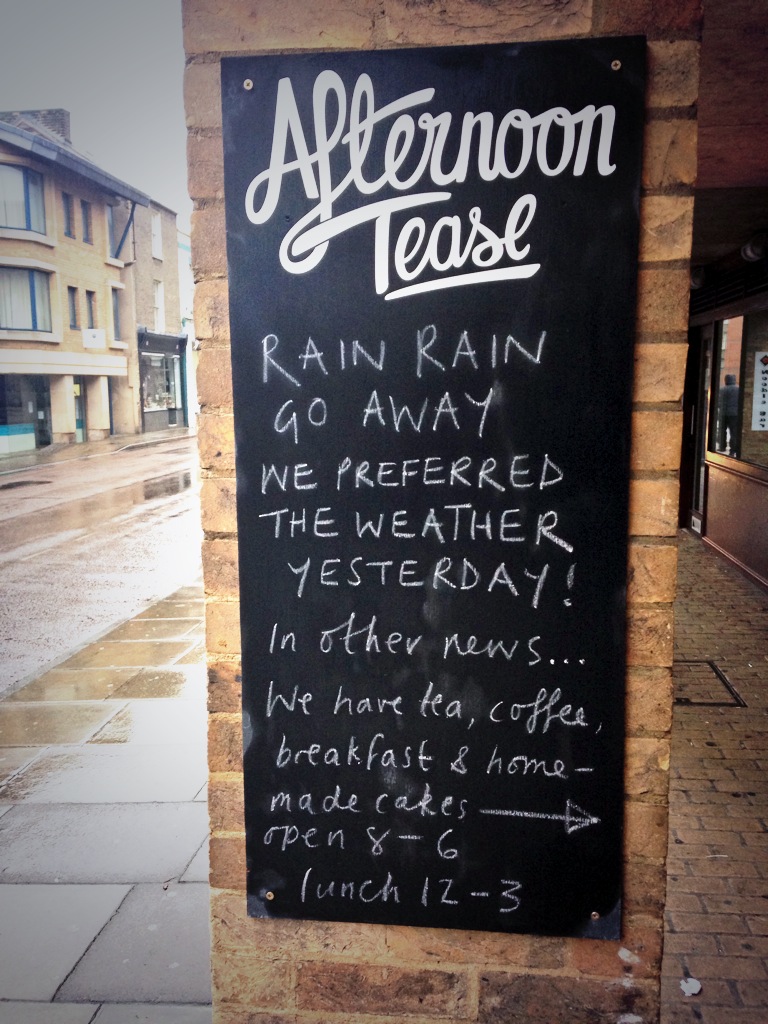 Afternoon
Tease
RAIN RAIN
GO AWAY
WE PREFERRED
THE WEATHER
YESTERDAY!
In other news...
We have tea, coffee,
breakfast & home-
made cakes →
open 8-6
lunch 12-3